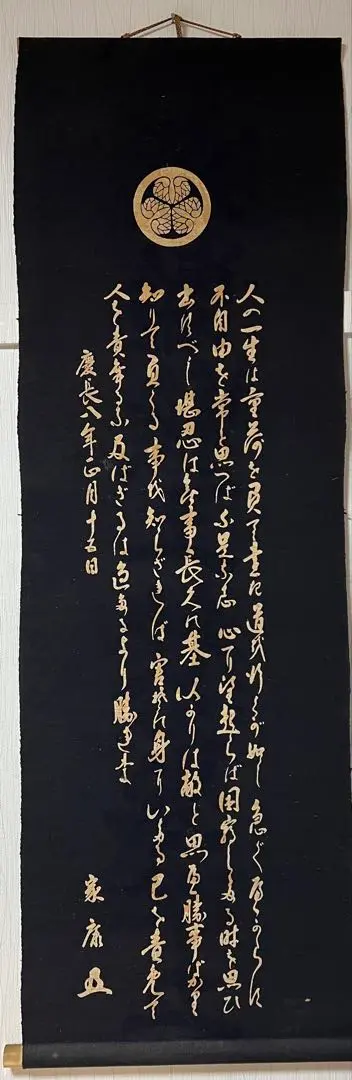 人の一生は重荷を負て遠き道を行くが如し 急ぐべからず
不自由を常と思へば不足なし 心に望起らば困窮したる時を思ひ
出すべし 堪忍は無事長久の基 いかりは敵と思へ 勝事ばかり
知りて負る事を知らざれば 害其身にいたる 己を責て
人を責むるな 及ばざるは過たるより勝れり
慶長八年正月十五日
家康